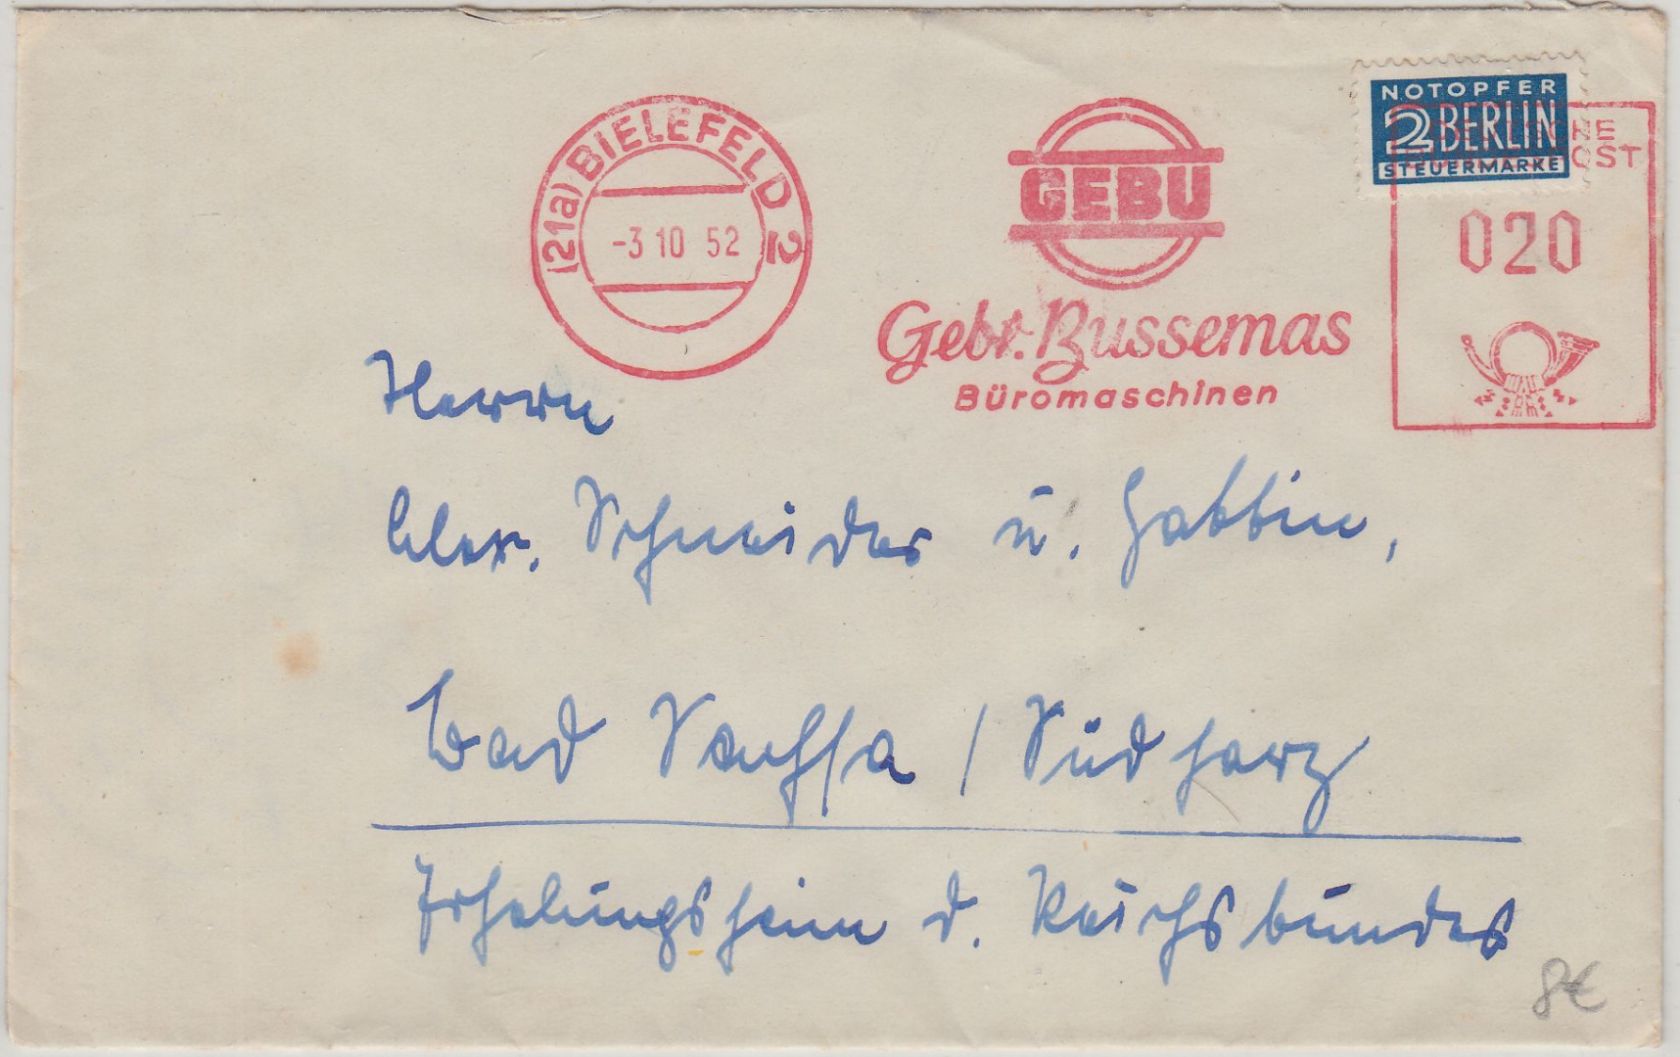 (21a) BIELEFELD 2
-3 10 52
GEBU
Gebr. Bussemas
Büromaschinen
NOTOPFER
2 BERLIN
STEUERMARKE
DEUTSCHE
020
Herrn
Alex. Schneider u. Gattin,
Bad Sachsa / Südharz
Erholungsheim d. Reichsbundes
8€